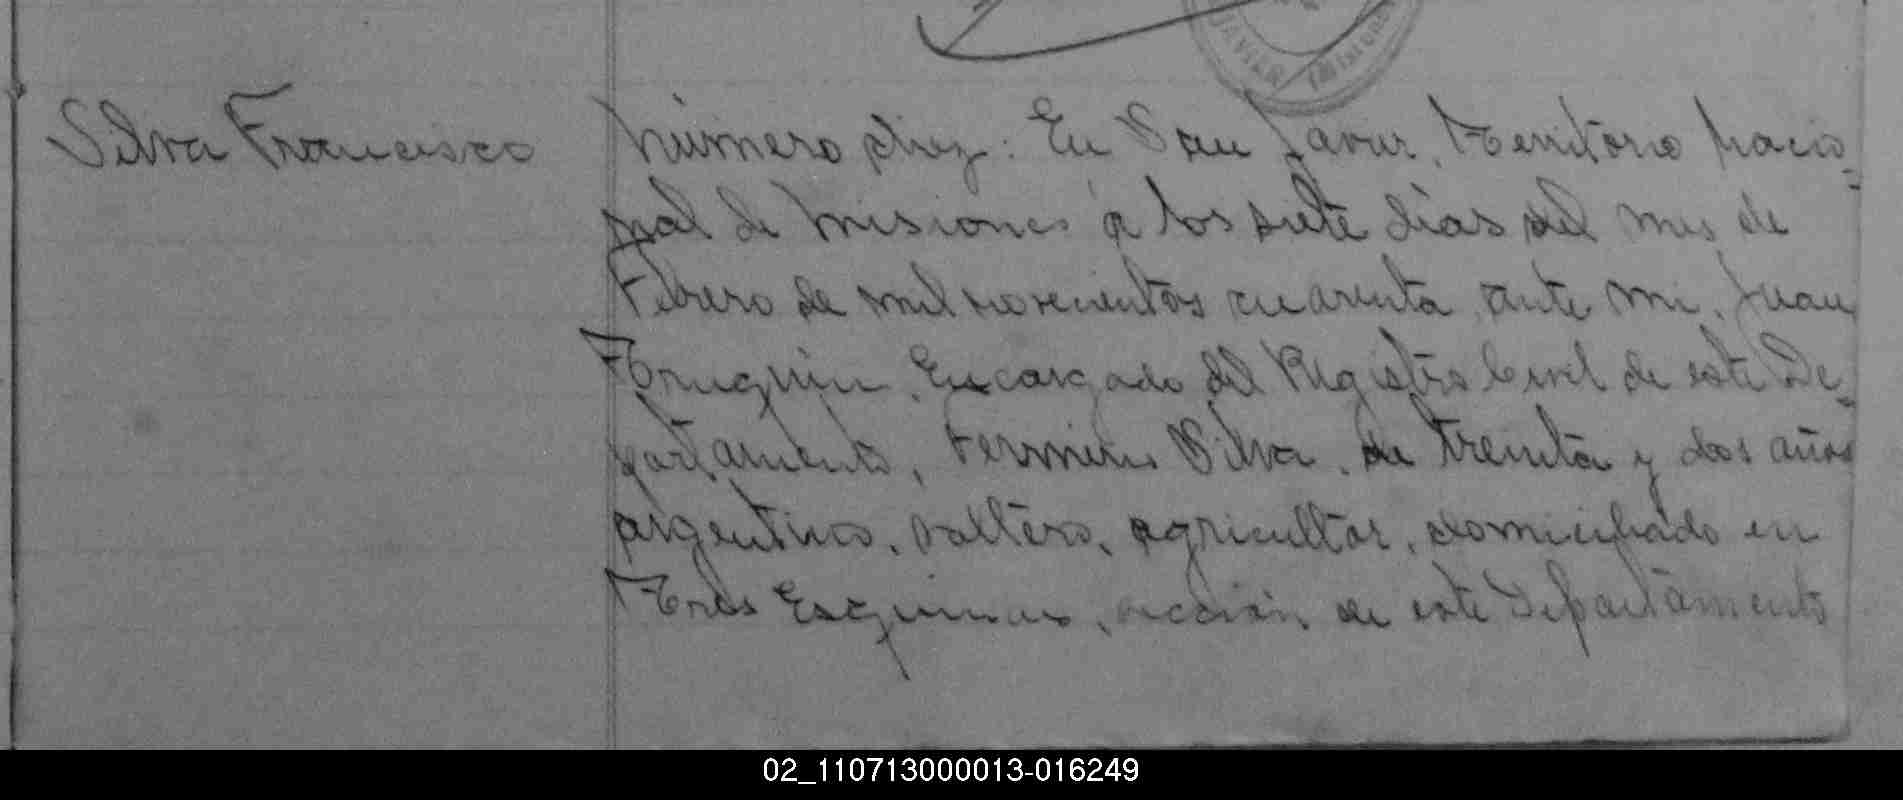 JAVIER (Misiones)
Silva Francisco
Número diez: En San Javier, Territorio Nacio-
nal de Misiones a los siete días del mes de
Febrero de mil novecientos cuarenta, ante mi, Juan
Encargado del Registro Civil de este De-
partamento, Fermin Silva, de treinta y dos años
argentino, soltero, agricultor, domiciliado en
Tres Esquinas, sección de este Departamento
02_110713000013-016249